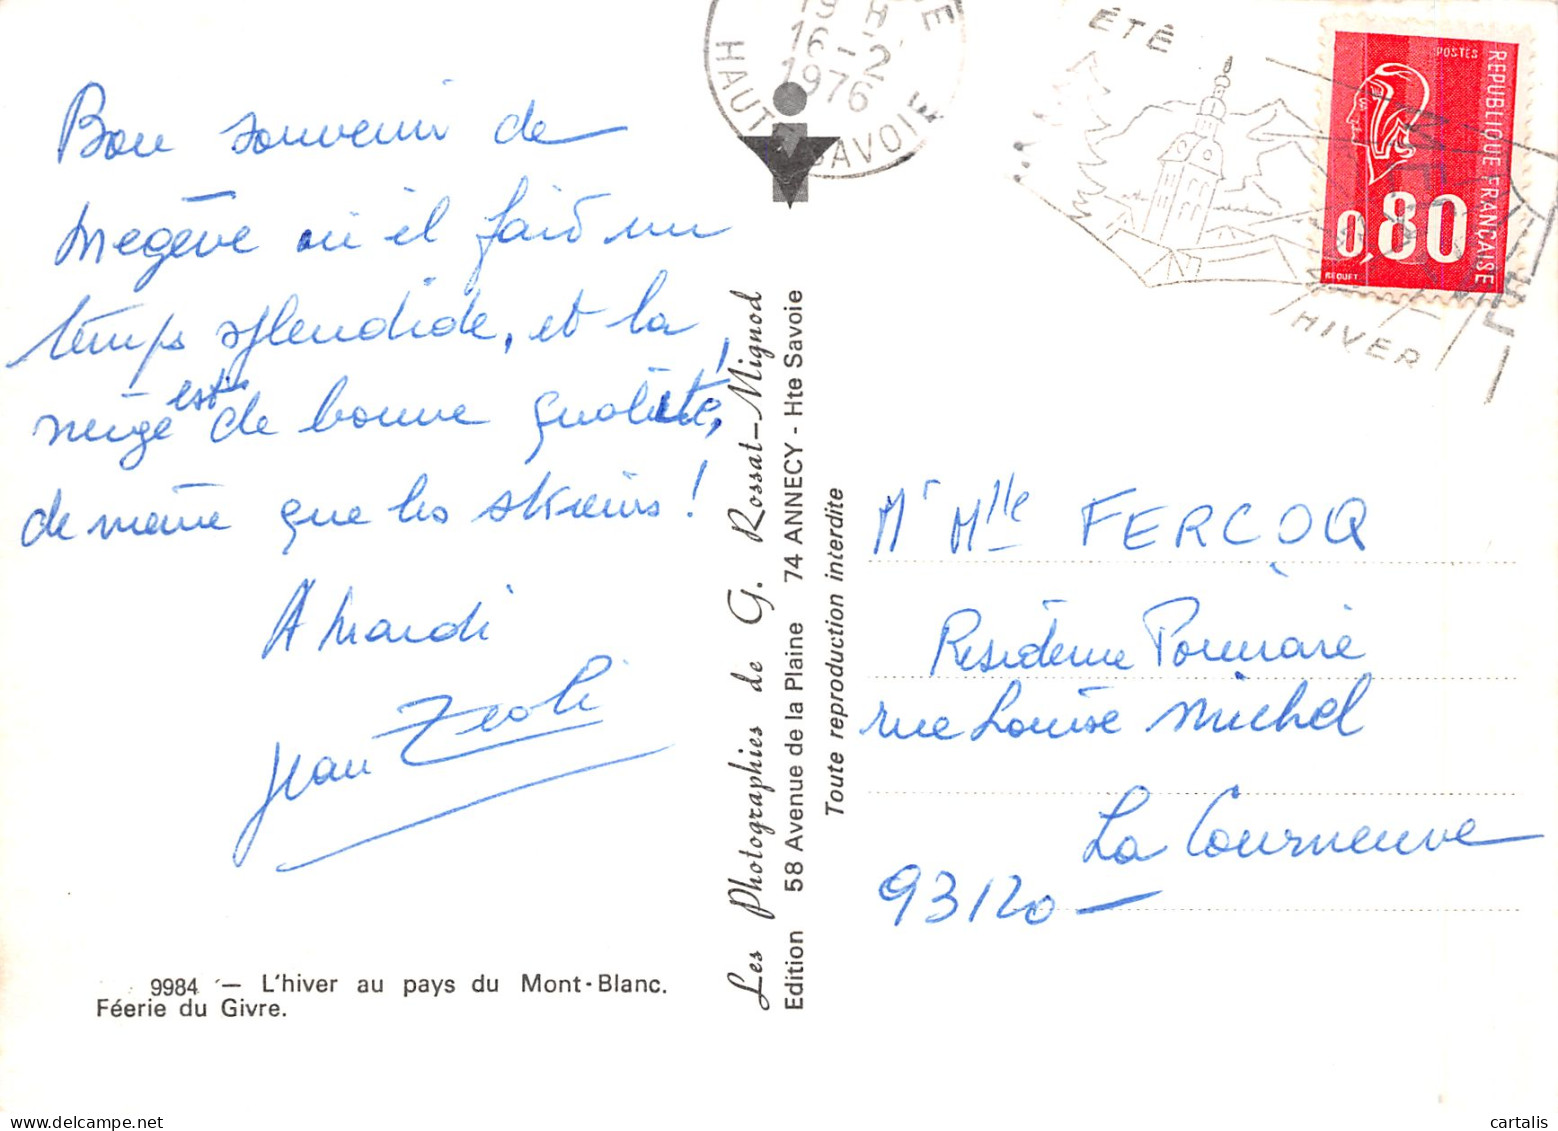 Bon souvenir de
Megève où il fait un
temps splendide, et la
neige est de bonne qualité,
de même que les skieurs !
A mardi
Jean Zeoli
9984 — L'hiver au pays du Mont-Blanc.
Féerie du Givre.
Les Photographies de G. Rossat-Mignod
Edition 58 Avenue de la Plaine 74 ANNECY - Hte Savoie
Toute reproduction interdite
19 H
16-2
1976
HAUTE SAVOIE
ÉTÉ
MEGÈVE
HIVER
POSTES
REPUBLIQUE FRANÇAISE
0,80
BEQUET
Mr Mlle FERCOQ
Résidence
rue Louise Michel
La Courneuve
93120
cartalis